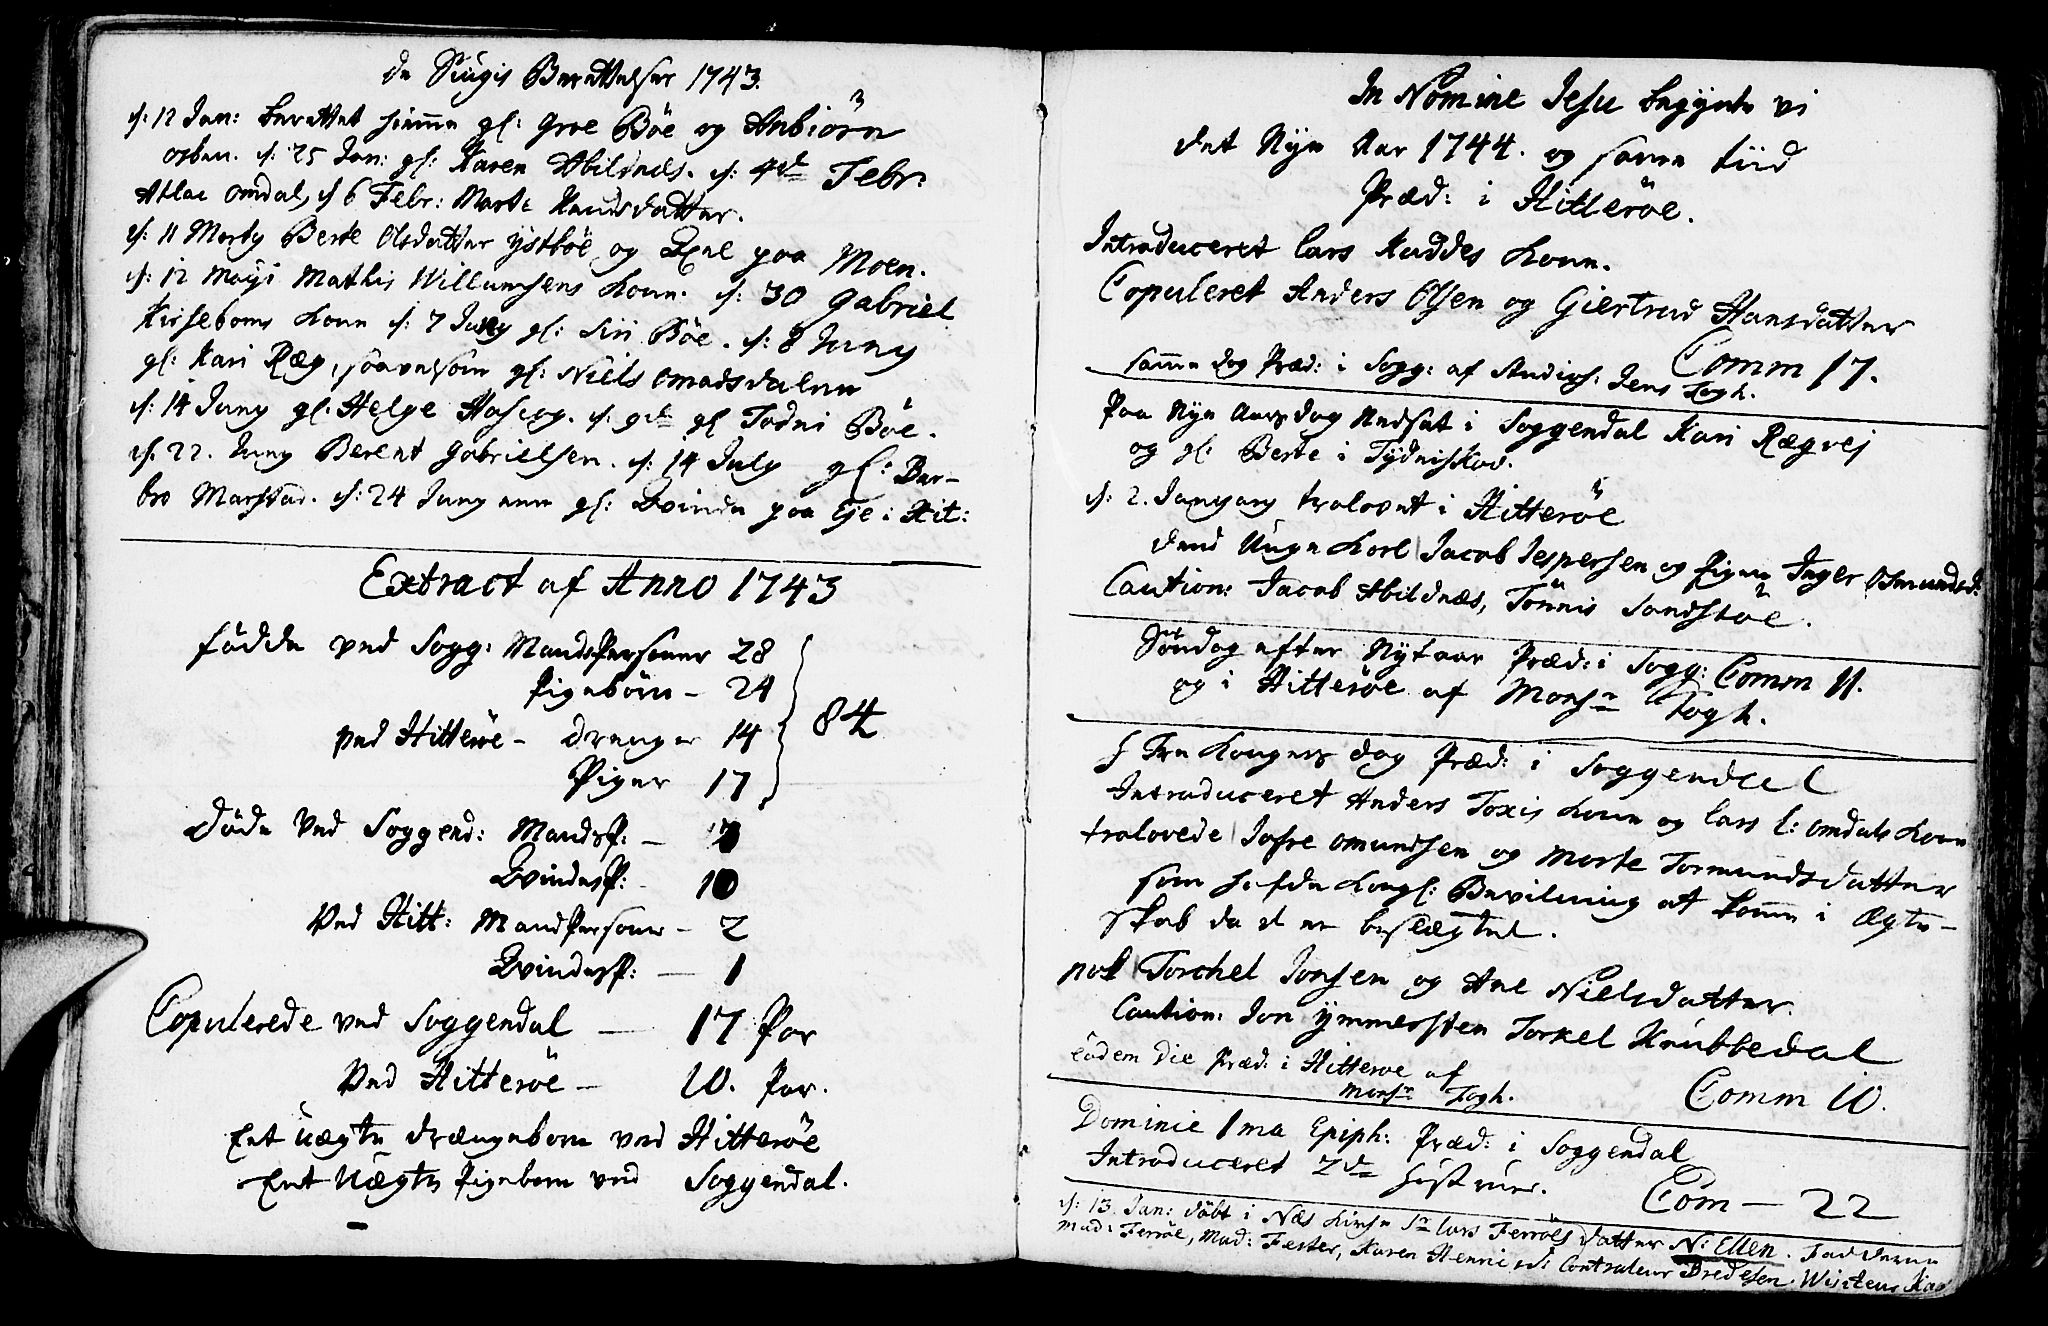 de Siugis Berettelser 1743.
d: 12 Jan: berettet hiemme gl: Groe Böe og Anbiörn
d: 25 Jan: gl: Karen Abilnes. d: 4de Febr:
Atlae Omdal, d 6 Febr: Marte Knudsdatter.
d: 11 Marty Berte Olsdatter Ystböe og Ane paa Moen.
d: 12 Maji Mathis Willumsens Kone. d: 30 Gabriel
Kirseboms Kone d: 7 Juny gl: Siri Böe. d: 8 Juny
gl: Kari Ræg, saavelsom gl: Niels Omadsdalen
d: 14 Juny gl: Helge Hascog. d: gl Todni Böe.
d: 22. Juny Berent Gabrielsen. d: 14 July gl: Bar-
bro Marstad. d: 24 Juny enn gl: Qvinde paa Eje i Hit:
Extract af Anno 1743
födde ved Sogg: MandsPersoner 28
Pigebörn - 24
ved Hitteröe - Drenge 14
84
Piger 17
Döde ved Soggend: MandsP: -
QvindesP: - 10
Ved Hitt: MandPersoner - 2
QvindesP: - 1
Copulerede ved Soggendal - 17 Par
Ved Hitteröe - 10. Par.
Eet Uægte Drængebarn ved Hitteröe
Eet Uægte Pigebarn ved Soggendal.
In Nomine Jesu begynte vi
det Nye Aar 1744. og samme tiid
Præd: i Hitteröe.
Introduceret Lars Kuddes Kone.
Copuleret Anders Olsen og Giertrud Hansdatter
Comm 17.
samme dag Præd: i Sogg: af Studios: Jens Fogh.
Paa Nye Aarsdag Undsat i Soggendal Kari Rægvej
og gl: Berte i Tydniskov.
d: 2. January trolovet i Hitteröe
dend Unge Karl Jacob Jespersen og Pigen Inger Osmundsd:
Caution: Jacob Abildnæs, Tönnis Sandstöe.
Söndag efter Nytaar Præd: i Sogg: Comm 11.
og i Hitteröe af Monsr Fogh.
H Tre Kongers dag Præd: i Soggendal
Introduceret Anders Toxis Kone og Lars L: Omdals Kone
trolovede Jofre Omundsen og Marte Tormundsdatter
som hafde Kongl: Bevilning at komme i Ægte-
skab da d er beslægtet.
nok Torchel Jonsen og Ane Nielsdatter.
Caution: Jon Ymmersten Torkel Knubbedal
eadem Die Præd: i Hitteroe af
Monsr Fogh.
Comm 10.
Dominic 1ma Epiph: Præd: i Soggendal
Introduceret 2de Hustruer.
Com - 22
d: 13. Jan: döbt i Næs Kirke Sr Lars Ferröes datter N: Ellen. Fadderne
Mad: Ferröe, Mad: Fester, Karen Henrichsd: Contraleur Bredesen. Wisiteur